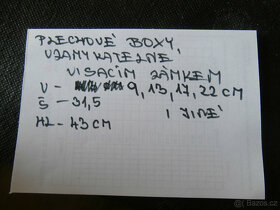 PLECHOVÉ BOXY,
UZAMYKATELNÉ
VISACÍM ZÁMKEM
V - 9, 13, 17, 22 CM
Š - 31,5 I JINÉ
HL - 43 CM
Bazos.cz